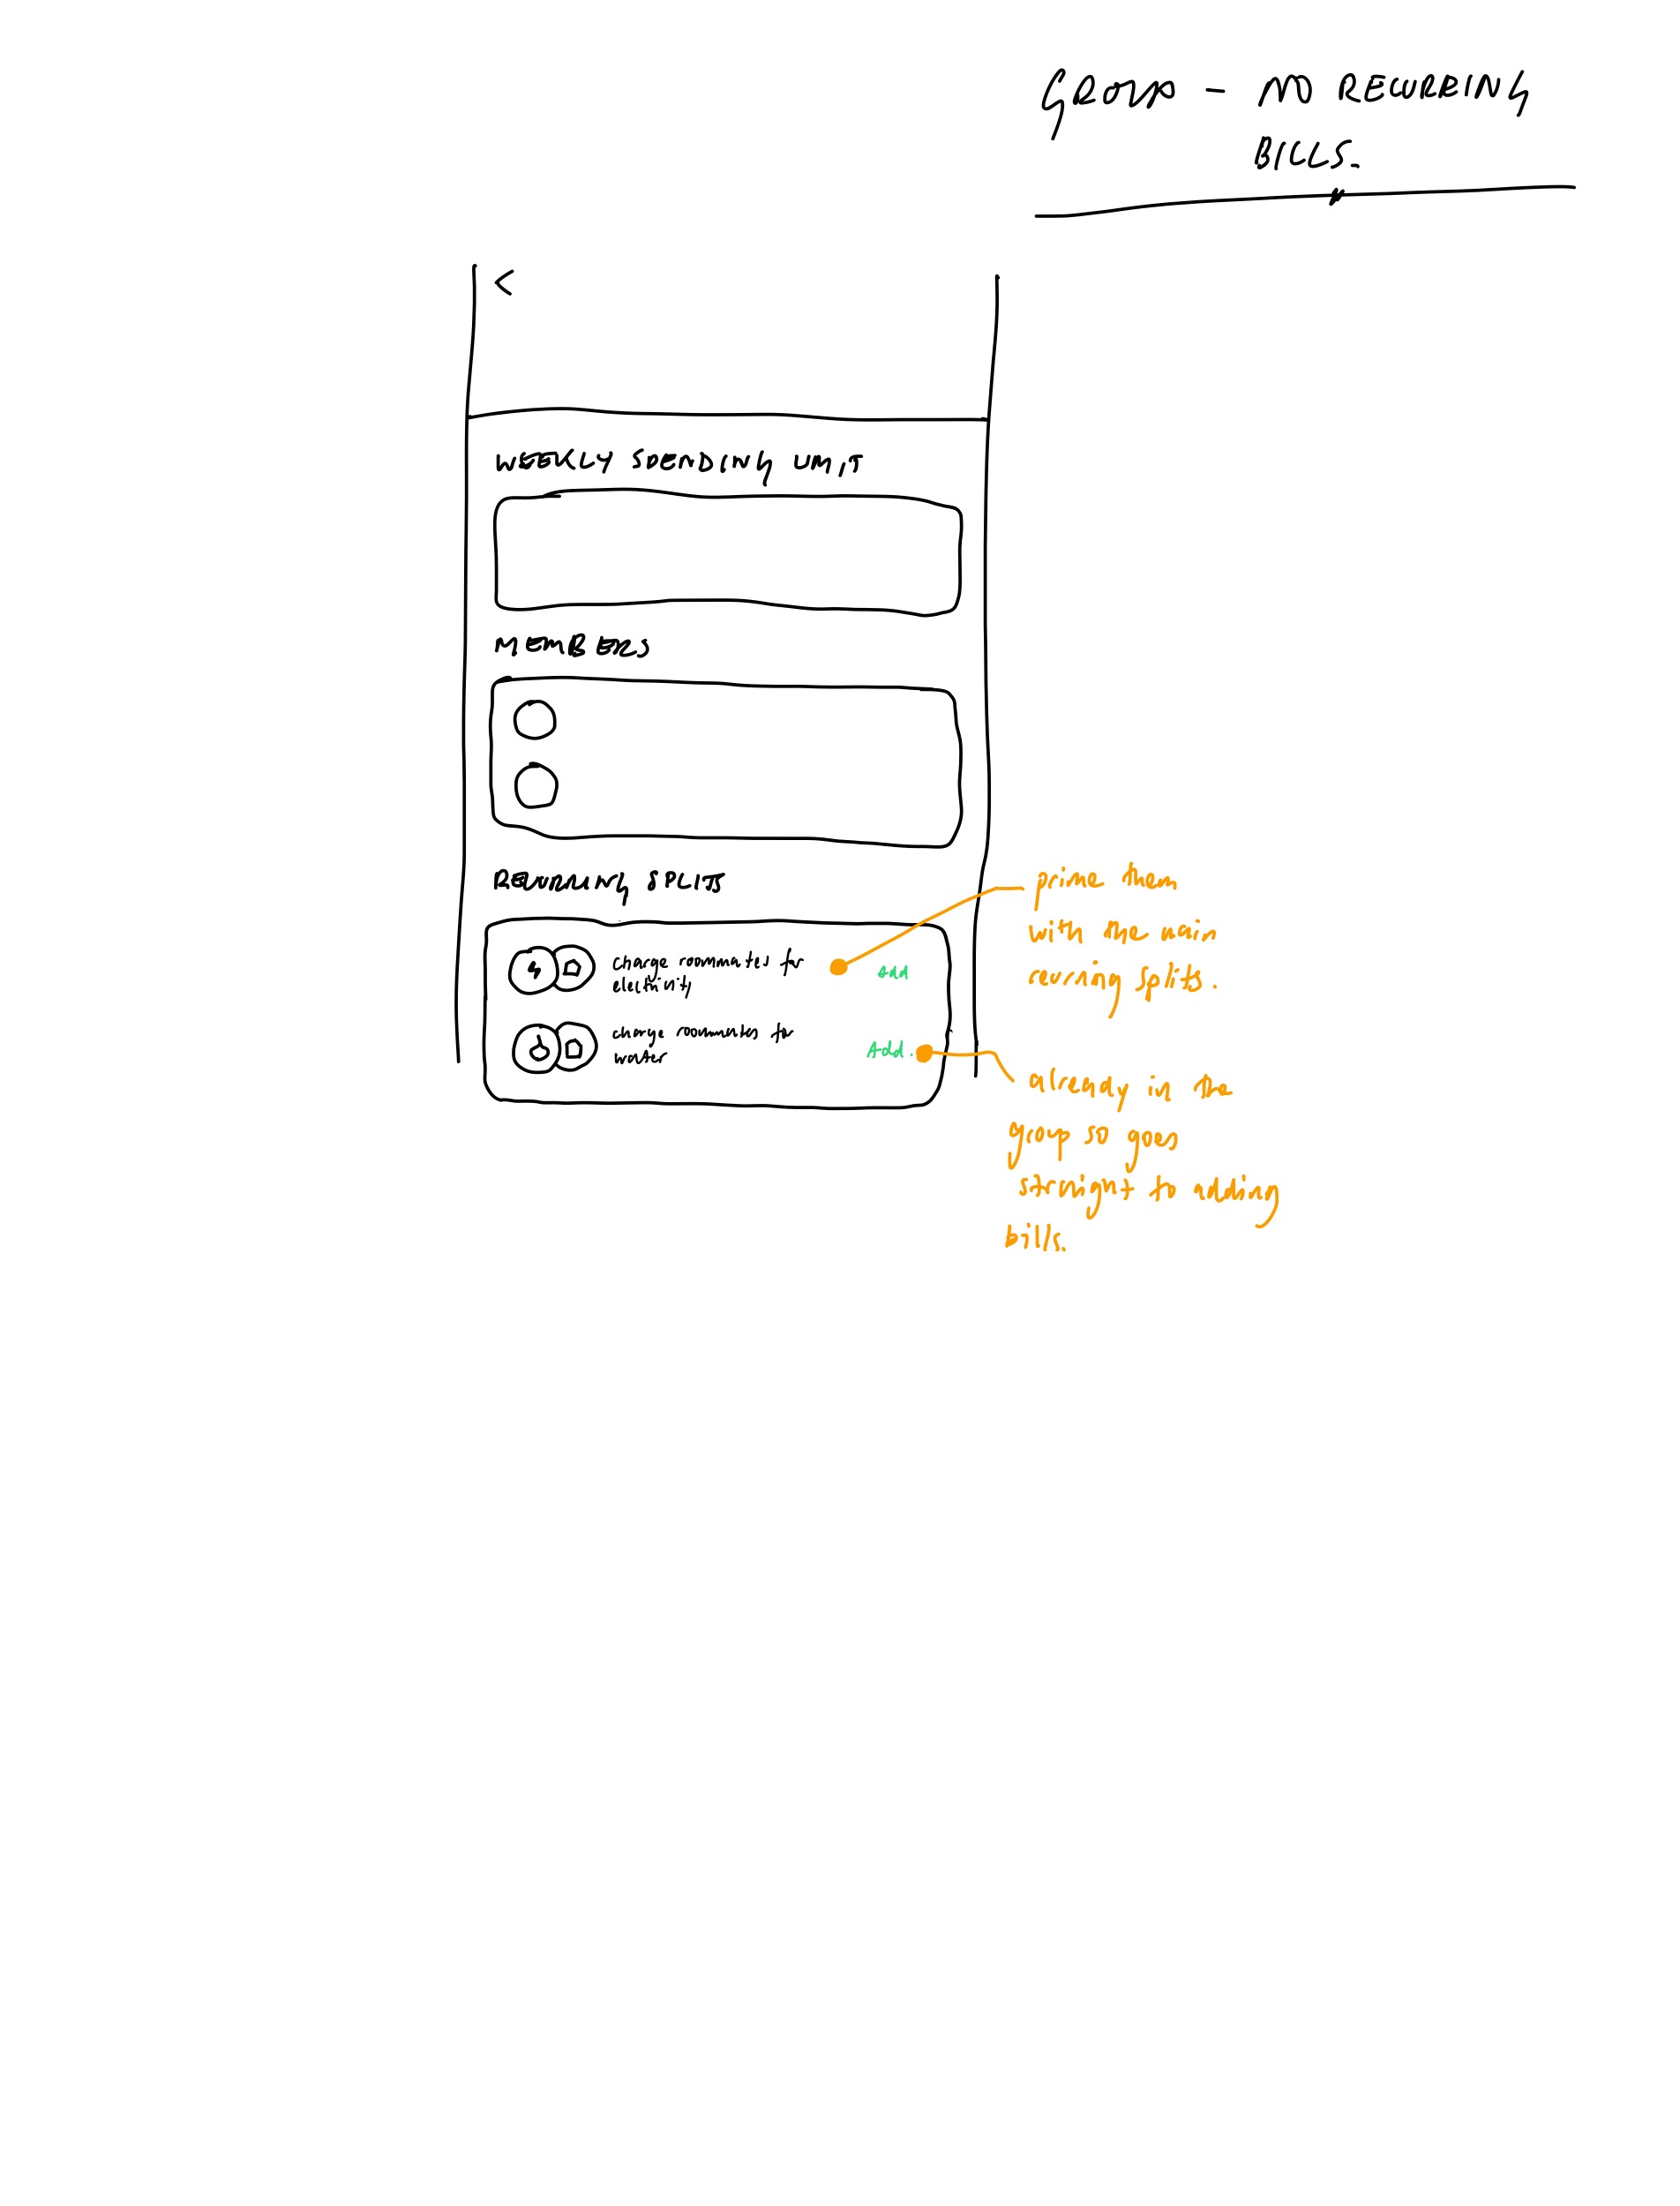 GROUP - NO RECURRING
BILLS.
<
WEEKLY SPENDING LIMIT
MEMBERS
RECURRING SPLITS
charge roommates for
electricity
Add
charge roommates for
water
Add.
prime them
with the main
recurring splits.
already in the
group so goes
straight to adding
bills.